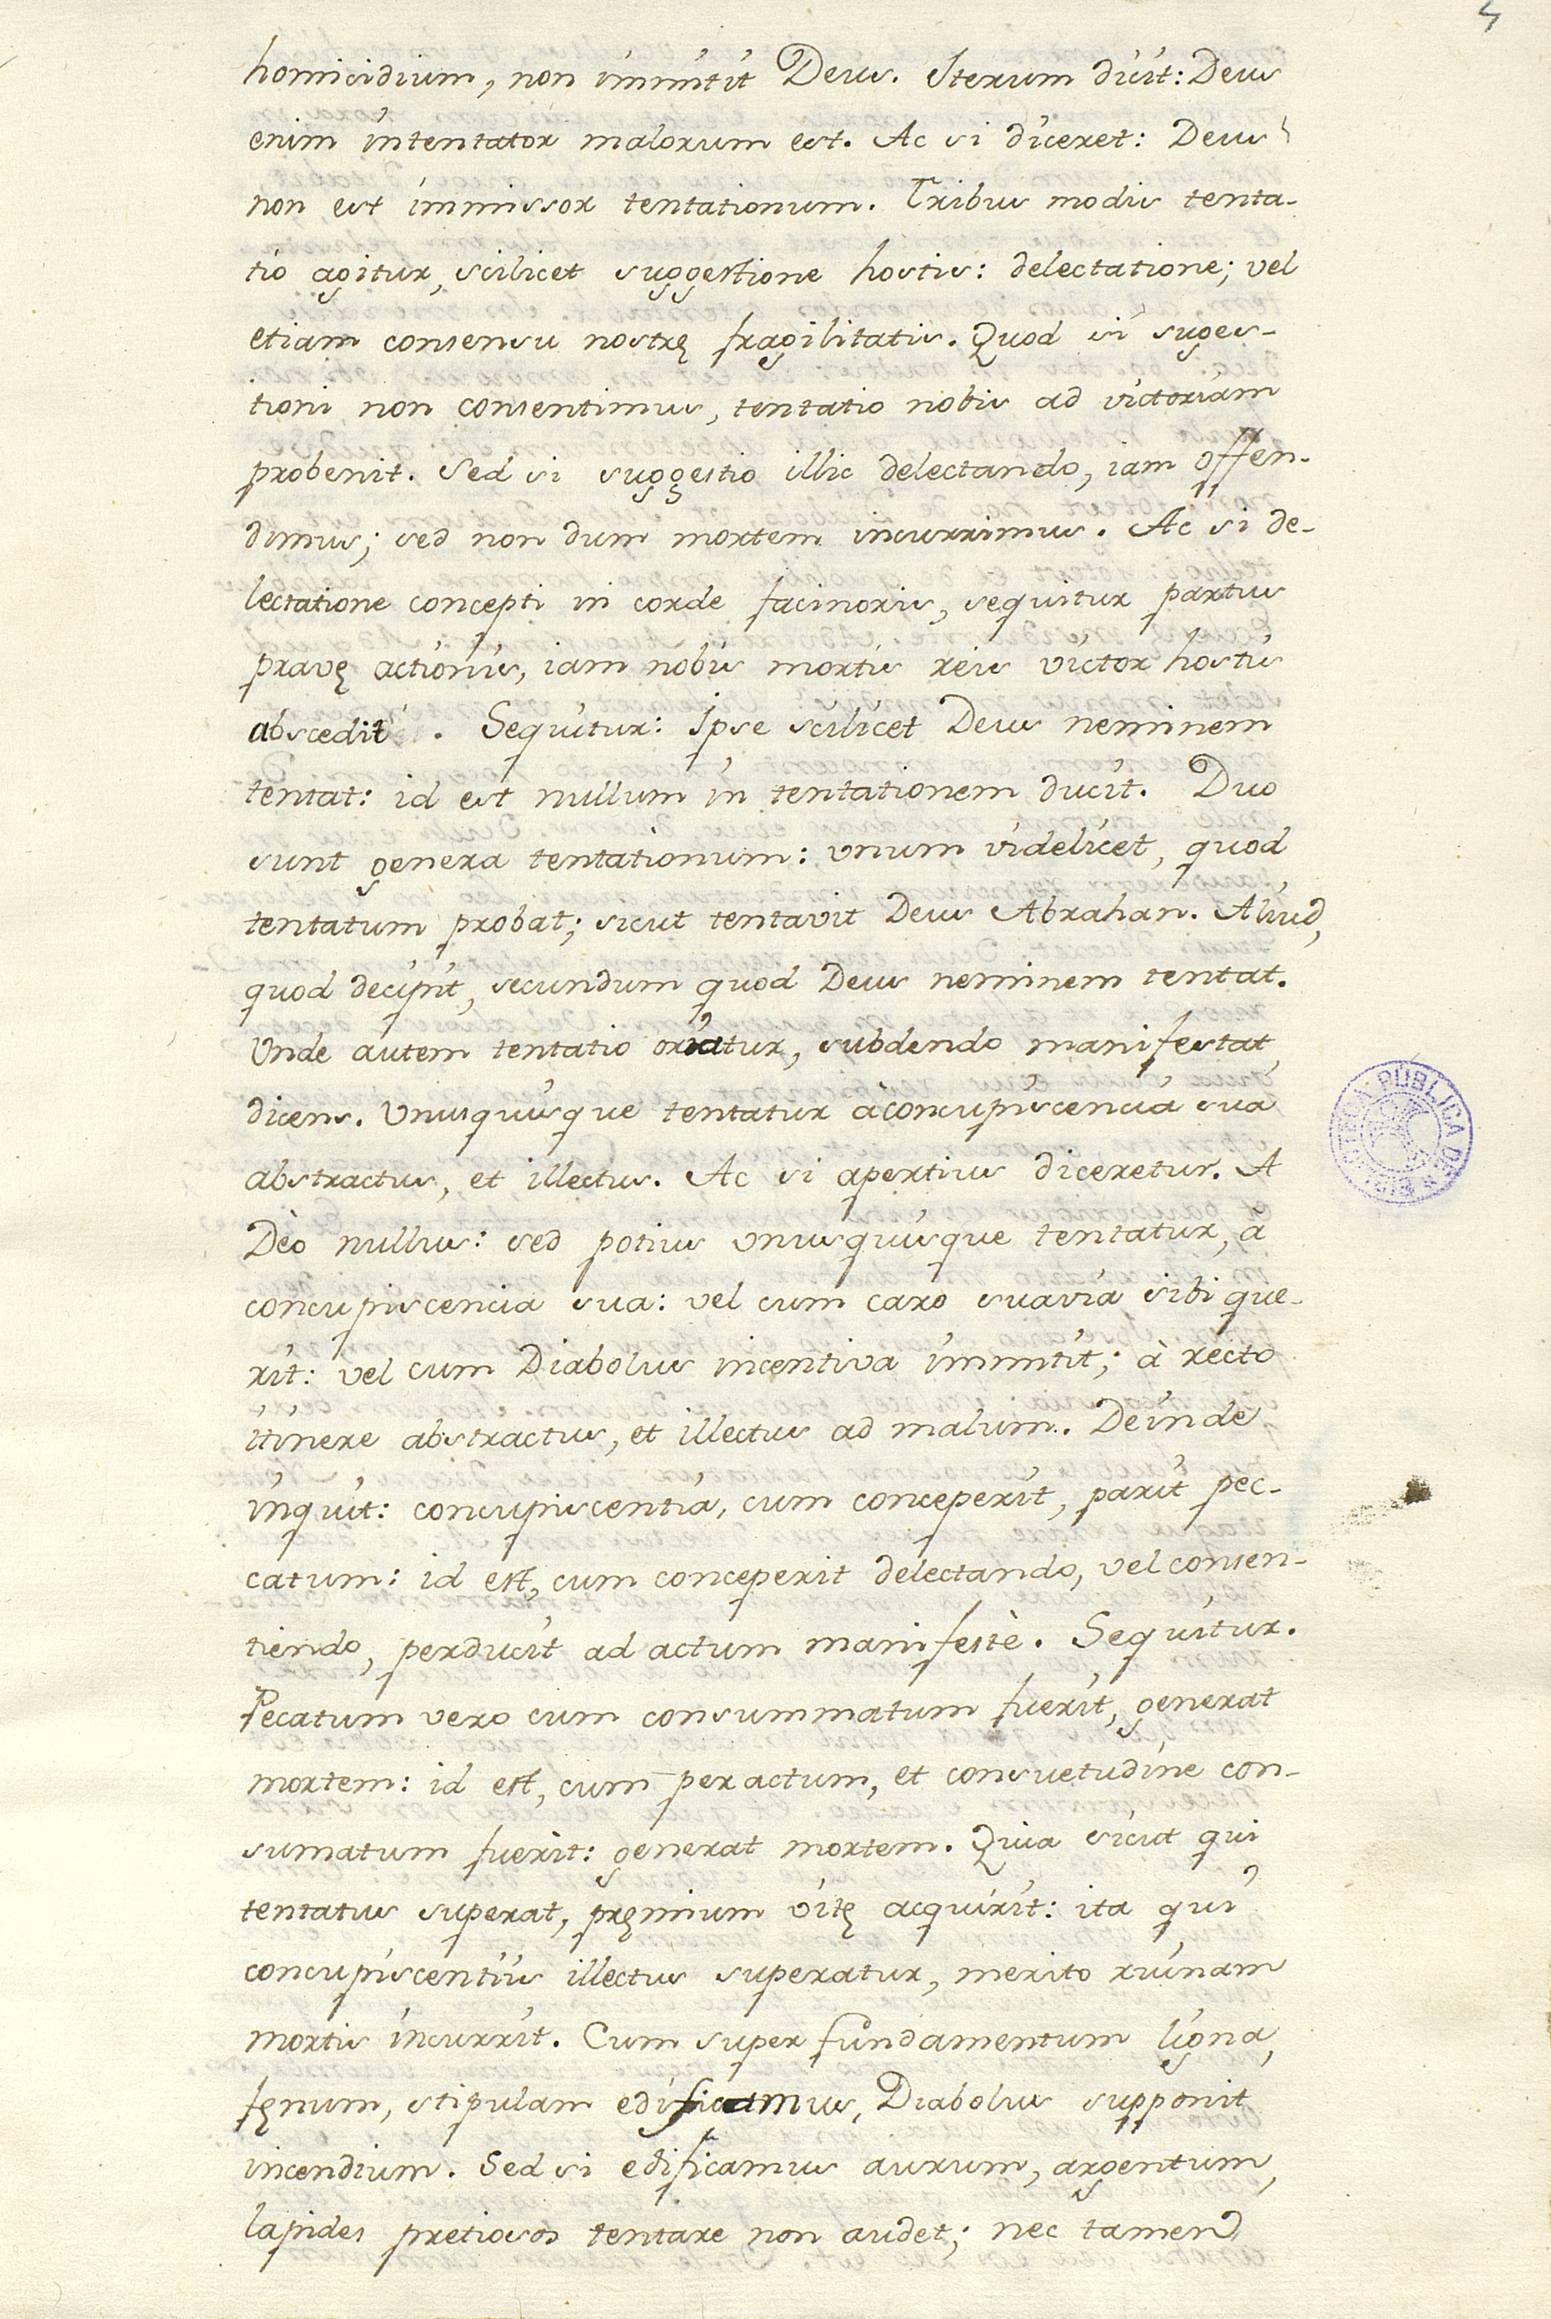 4
homicidium, non immitit Deus. Iterum dicit: Deus
enim intentator malorum est. Ac si diceret: Deus
non est immissor tentationum. Tribus modis tenta-
tio agitur, scilicet suggestione hostis: delectatione; vel
etiam consensu nostrę fragilitatis. Quod si suges-
tioni non consentimus, tentatio nobis ad victoriam
probenit. Sed si suggestio illic delectando, iam offen-
dimus; sed non dum mortem incurrimus. Ac si de-
lectatione concepti in corde facinoris, sequitur partus
pravę actionis, iam nobis mortis reis victor hostis
abscedit. Sequitur: Ipse scilicet Deus neminem
tentat: id est nullum in tentationem ducit. Duo
sunt genera tentationum: vnum videlicet, quod
tentatum probat; sicut tentavit Deus Abrahan. Aliud,
quod decipit, secundum quod Deus neminem tentat.
Vnde autem tentatio oriatur, subdendo manifestat,
dicens. Vnusquisque tentatur àconcupiscencia sua
abstractus, et illectus. Ac si apertius diceretur. A
Dèo nullus: sed potius vnusquisque tentatur, à
concupiscencia sua: vel cum caro suavia sibi que-
rit: vel cum Diabolus incentiva immitit; à recto
itinere abstractus, et illectus ad malum. Deinde
inquit: concupiscentia, cum conceperit, parit pec-
catum: id est, cum conceperit delectando, vel consen-
tiendo, perducit ad actum manifestè. Sequitur.
Pecatum vero cum consummatum fuerit, generat
mortem: id est, cum per actum, et consuetudine con-
sumatum fuerit: generat mortem. Quia sicut qui
tentatus superat, pręmium vitę acquirit: ita qui
concupiscentiis illectus superatur, merito ruinam
mortis incurrit. Cum super fundamentum ligna,
fęnum, stipulam edificamus, Diabolus supponit
incendium. Sed si edificamus aurum, argentum,
lapides pretiosos tentare non audet; nec tamen